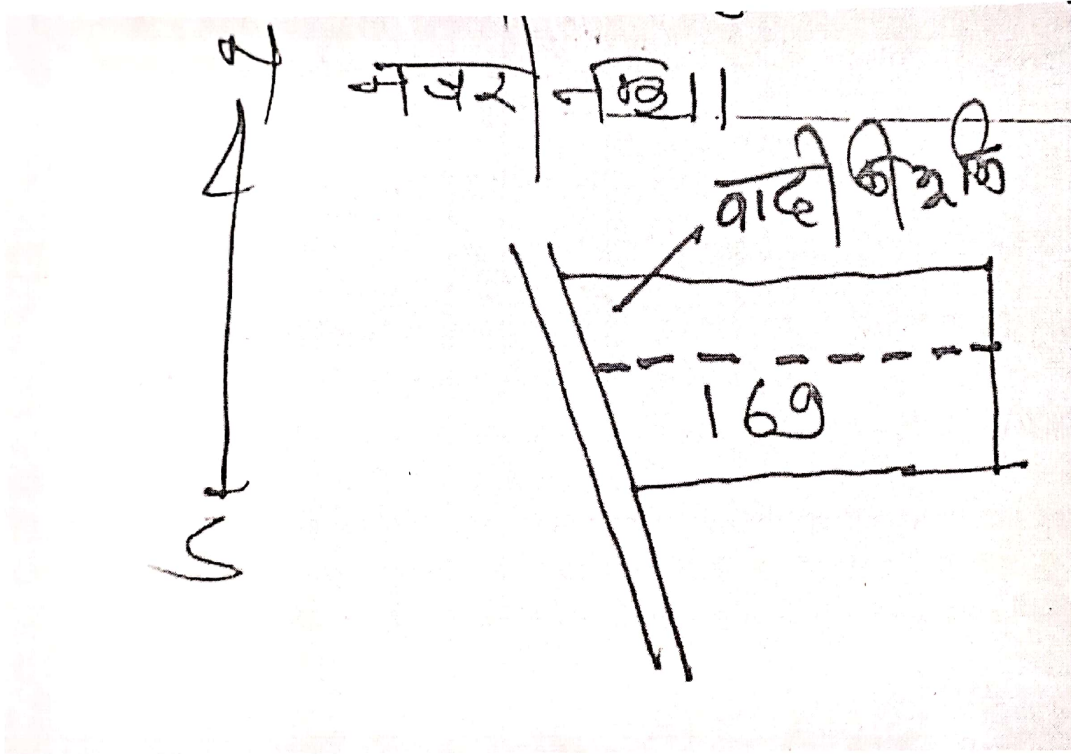 नजर नक्शा
वादी की भूमि
169
S